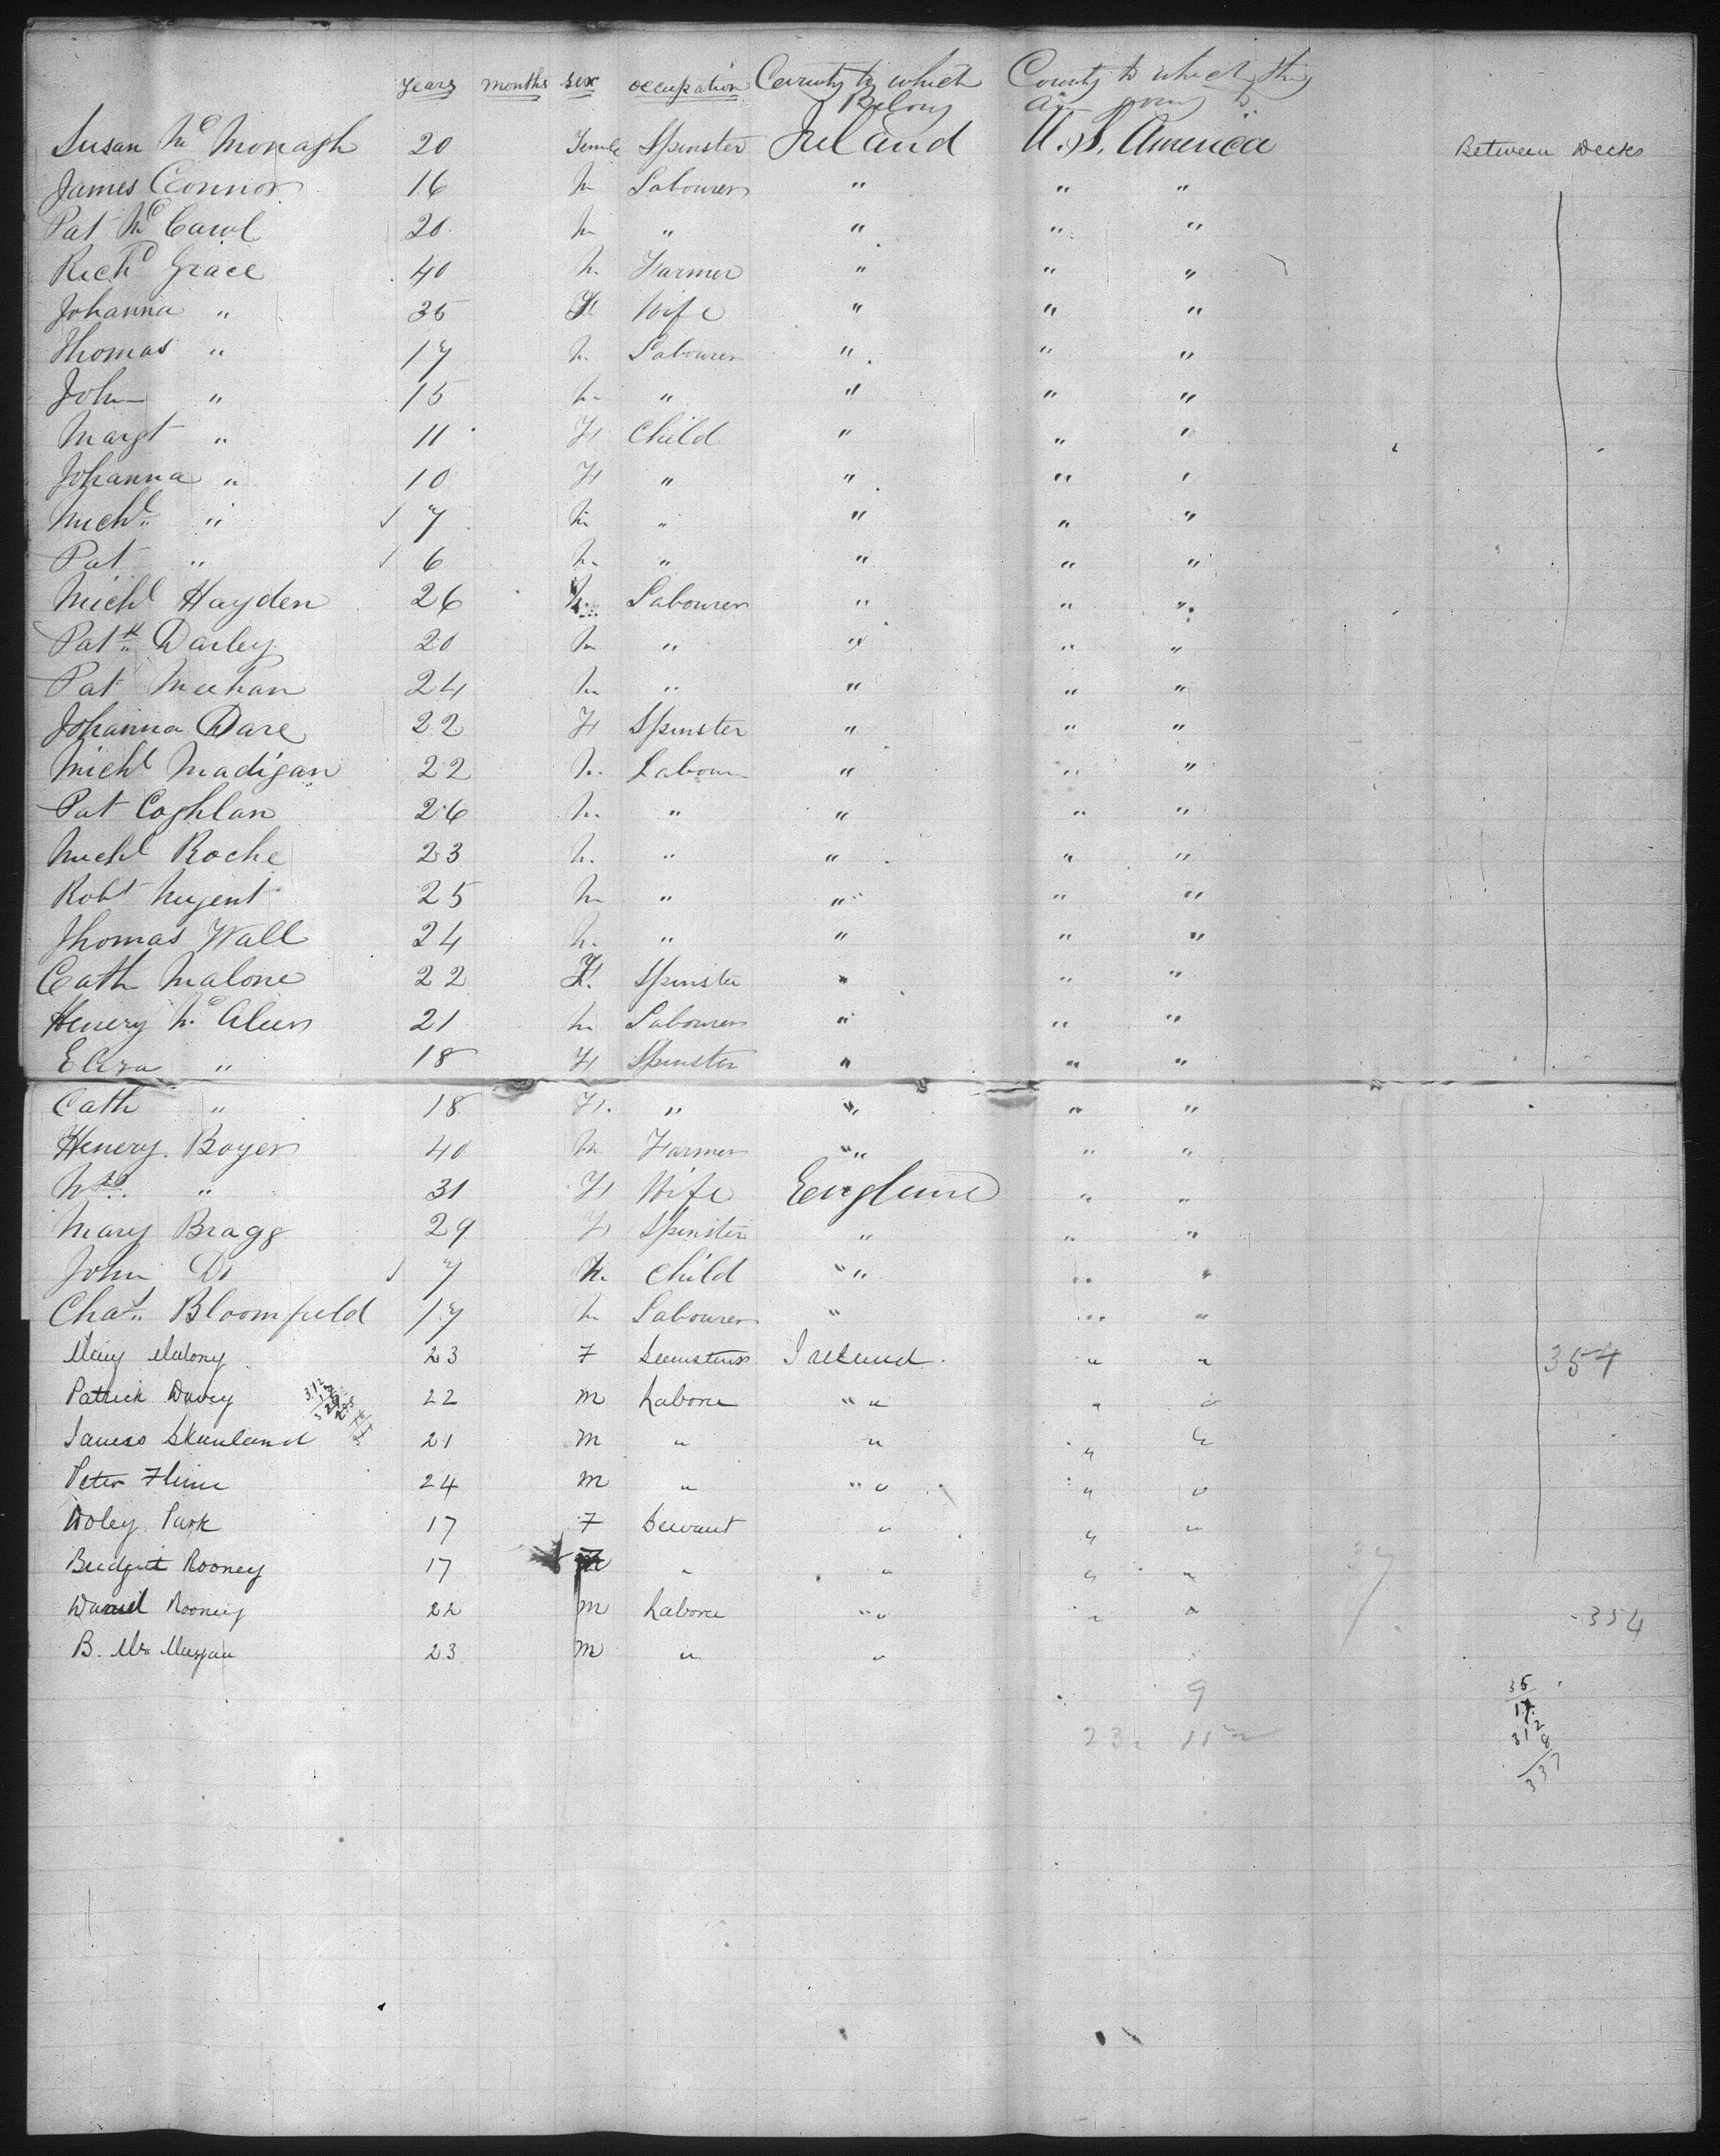 Years months Sex occupation Country to which Belong Country to which they are going to
Susan McMonagh 20 Female Spinster Ireland U.S. America Between Decks
James Connor 16 M Labourer " " "
Pat McCarol 20 M " " " "
Richd Grace 40 M. Farmer " " "
Johanna " 35 F Wife " " "
Thomas " 17 M Labourer " " "
John " 15 M " " " "
Margt " 11 F Child " " "
Johanna " 10 F " " " "
Michl " 7 M " " " "
Pat " 6 M " " " "
Michl Hayden 26 M Labourer " " "
Patk Darley 20 M " " " "
Pat Meehan 24 M " " " "
Johanna Dare 22 F Spinster " " "
Michl Madigan 22 M Labour " " "
Pat Coghlan 26 M " " " "
Michl Roche 23 M " " " "
Robt Nugent 25 M " " " "
Thomas Wall 24 M " " " "
Cath Malone 22 F. Spinster " " "
Henery 21 M Labourer " " "
Eliza " 18 F Spinster " " "
Cath " 18 F. " " " "
Henery Boyer 40 M Farmer " " "
Mrs " 31 F Wife England " "
Mary Bragg 29 F Spinster " " "
John Do 7 M. Child " " "
Chas Bloomfield 17 M Labourer " " "
Mary Malony 23 F Ireland " " 354
Patrick Davey 22 M Labore " " "
James 21 M " " " "
Peter 24 M " " " "
Park 17 F Servant " " "
Bridget Rooney 17 F " " " "
37
Daniel Rooney 22 M Labore " " "
354
B. 23 M " "
9
35
17
312
8
337